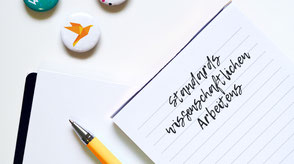 standards
wissenschaftlichen
Arbeitens